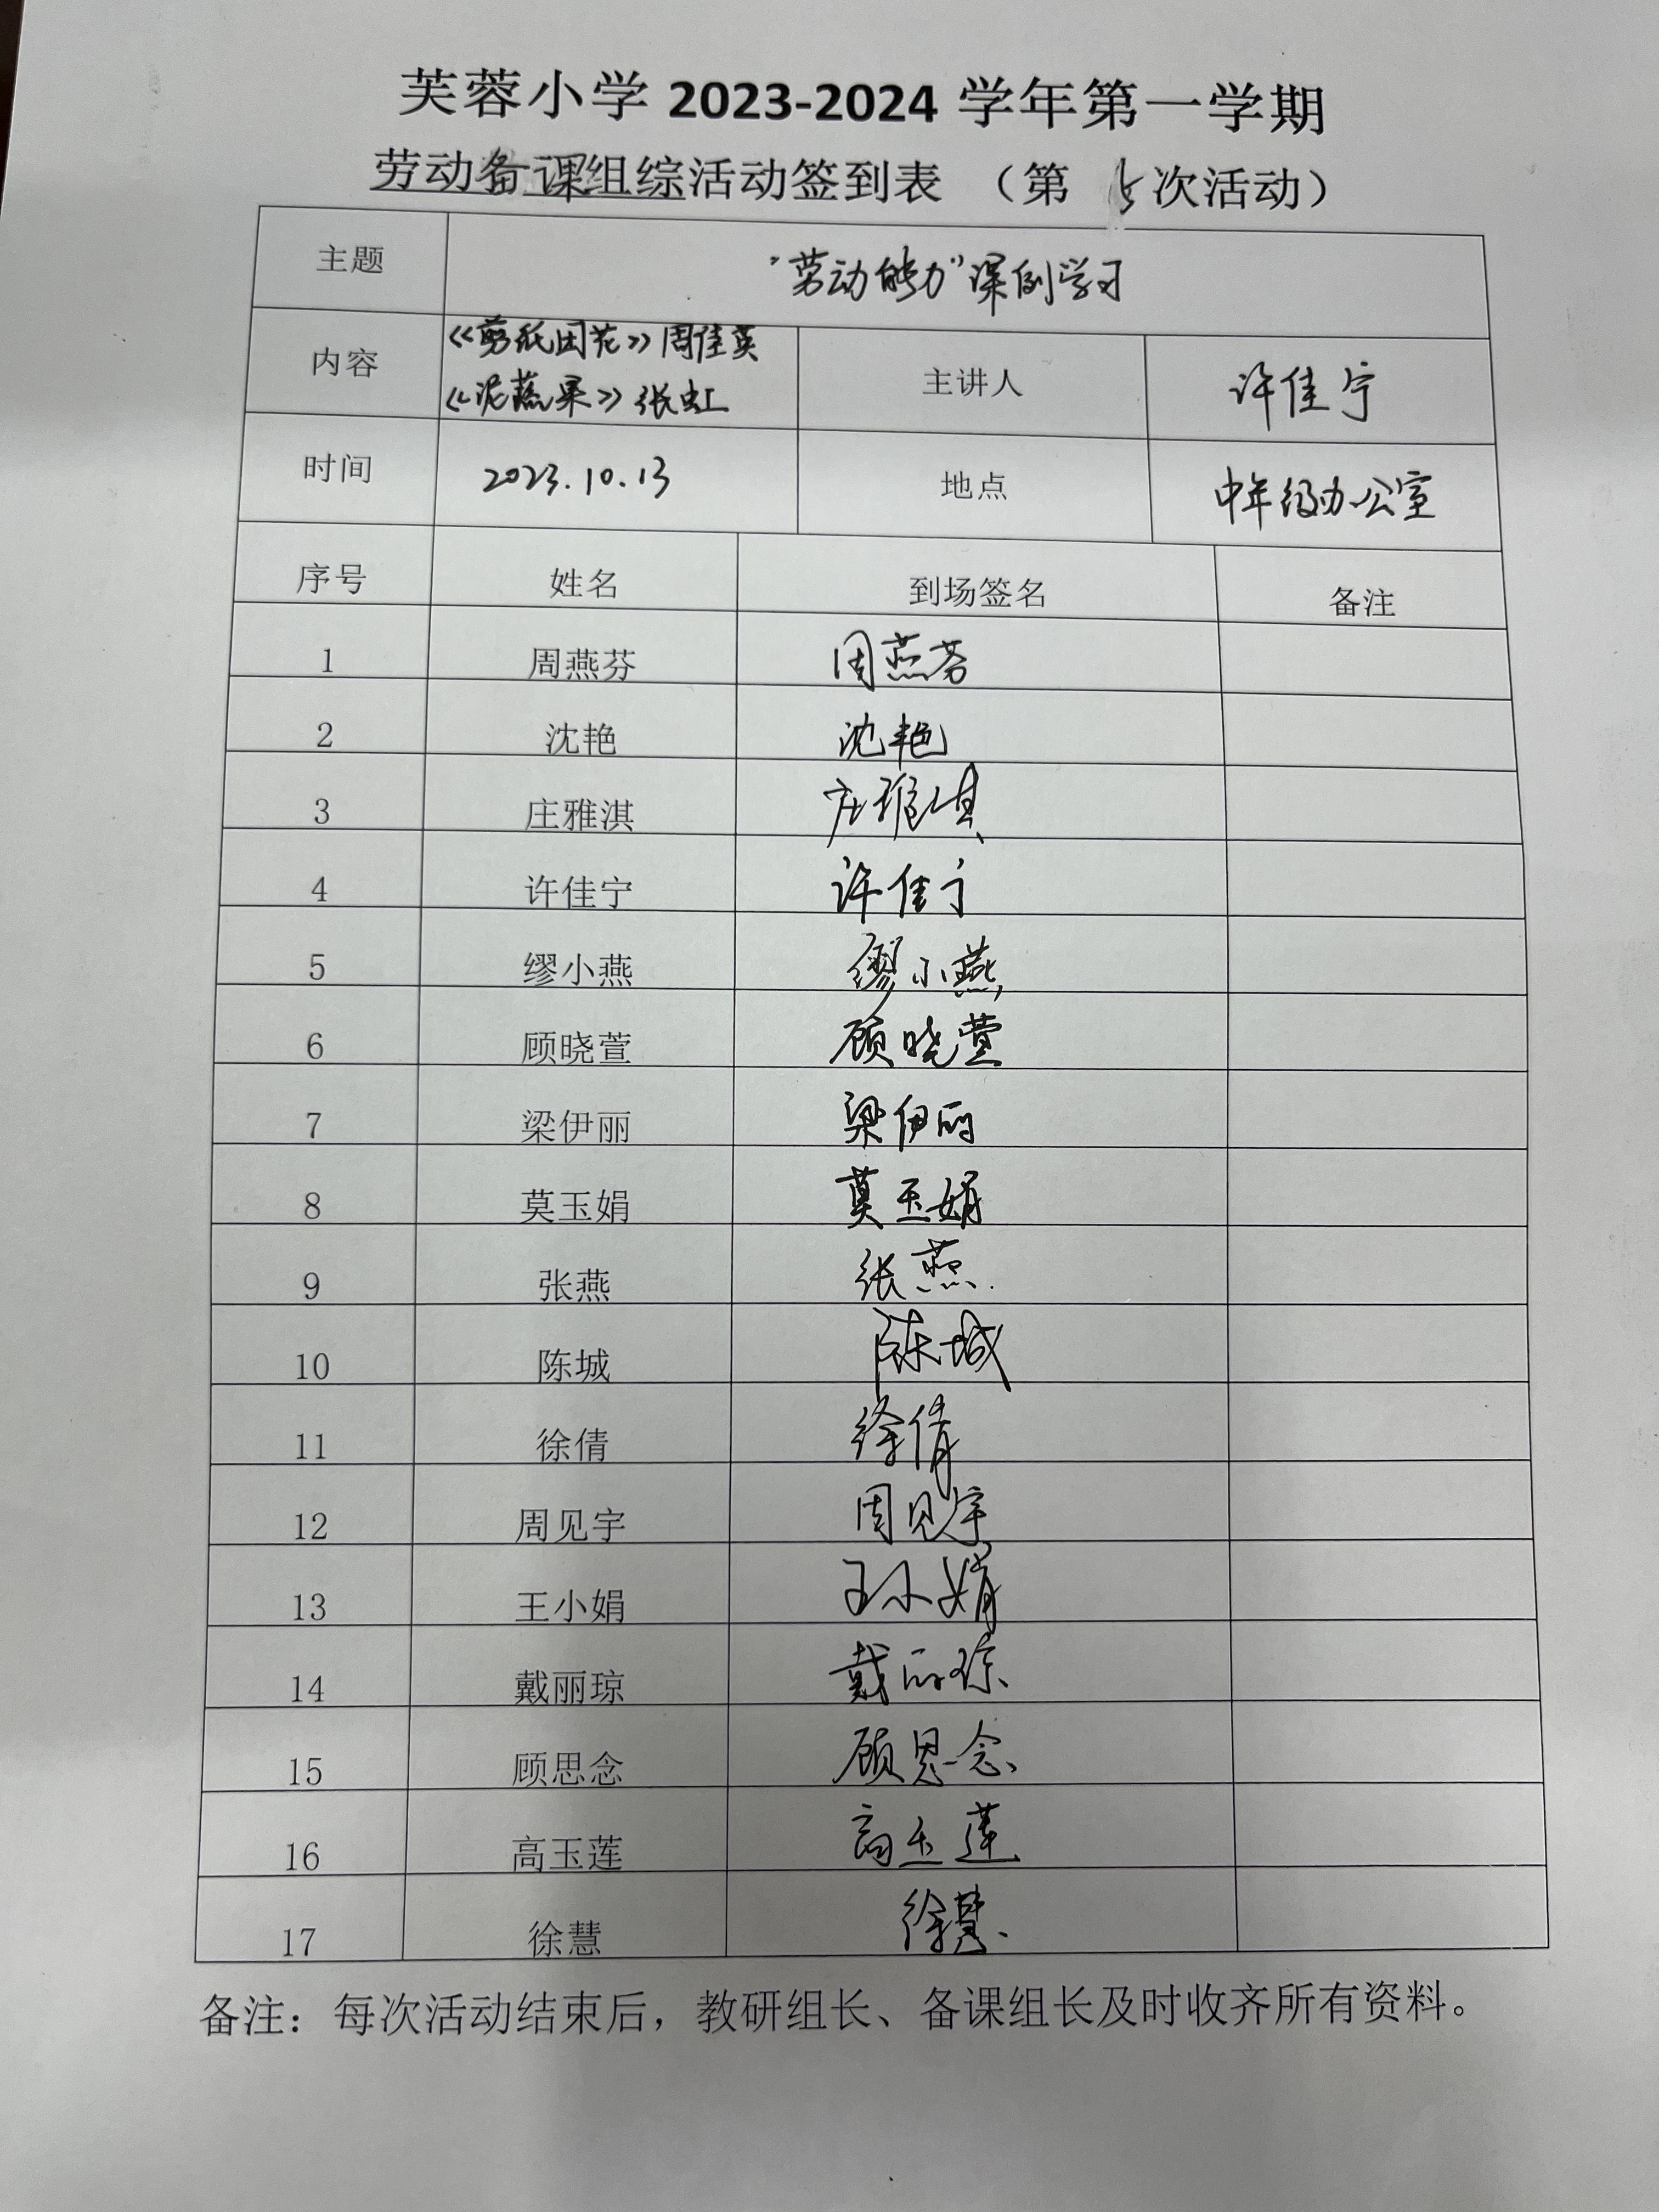 芙蓉小学 2023-2024 学年第一学期
劳动备课组综活动签到表 (第 5 次活动)
主题 “劳动能力”课例学习
内容 《剪纸团花》周佳英 《泥蔬果》张虹 主讲人 许佳宁
时间 2023.10.13 地点 中年级办公室
序号 姓名 到场签名 备注
1 周燕芬 周燕芬
2 沈艳 沈艳
3 庄雅淇 庄雅淇
4 许佳宁 许佳宁
5 缪小燕 缪小燕
6 顾晓萱 顾晓萱
7 梁伊丽 梁伊丽
8 莫玉娟 莫玉娟
9 张燕 张燕
10 陈城 陈城
11 徐倩 徐倩
12 周见宇 周见宇
13 王小娟 王小娟
14 戴丽琼 戴丽琼
15 顾思念 顾思念
16 高玉莲 高玉莲
17 徐慧 徐慧
备注：每次活动结束后，教研组长、备课组长及时收齐所有资料。